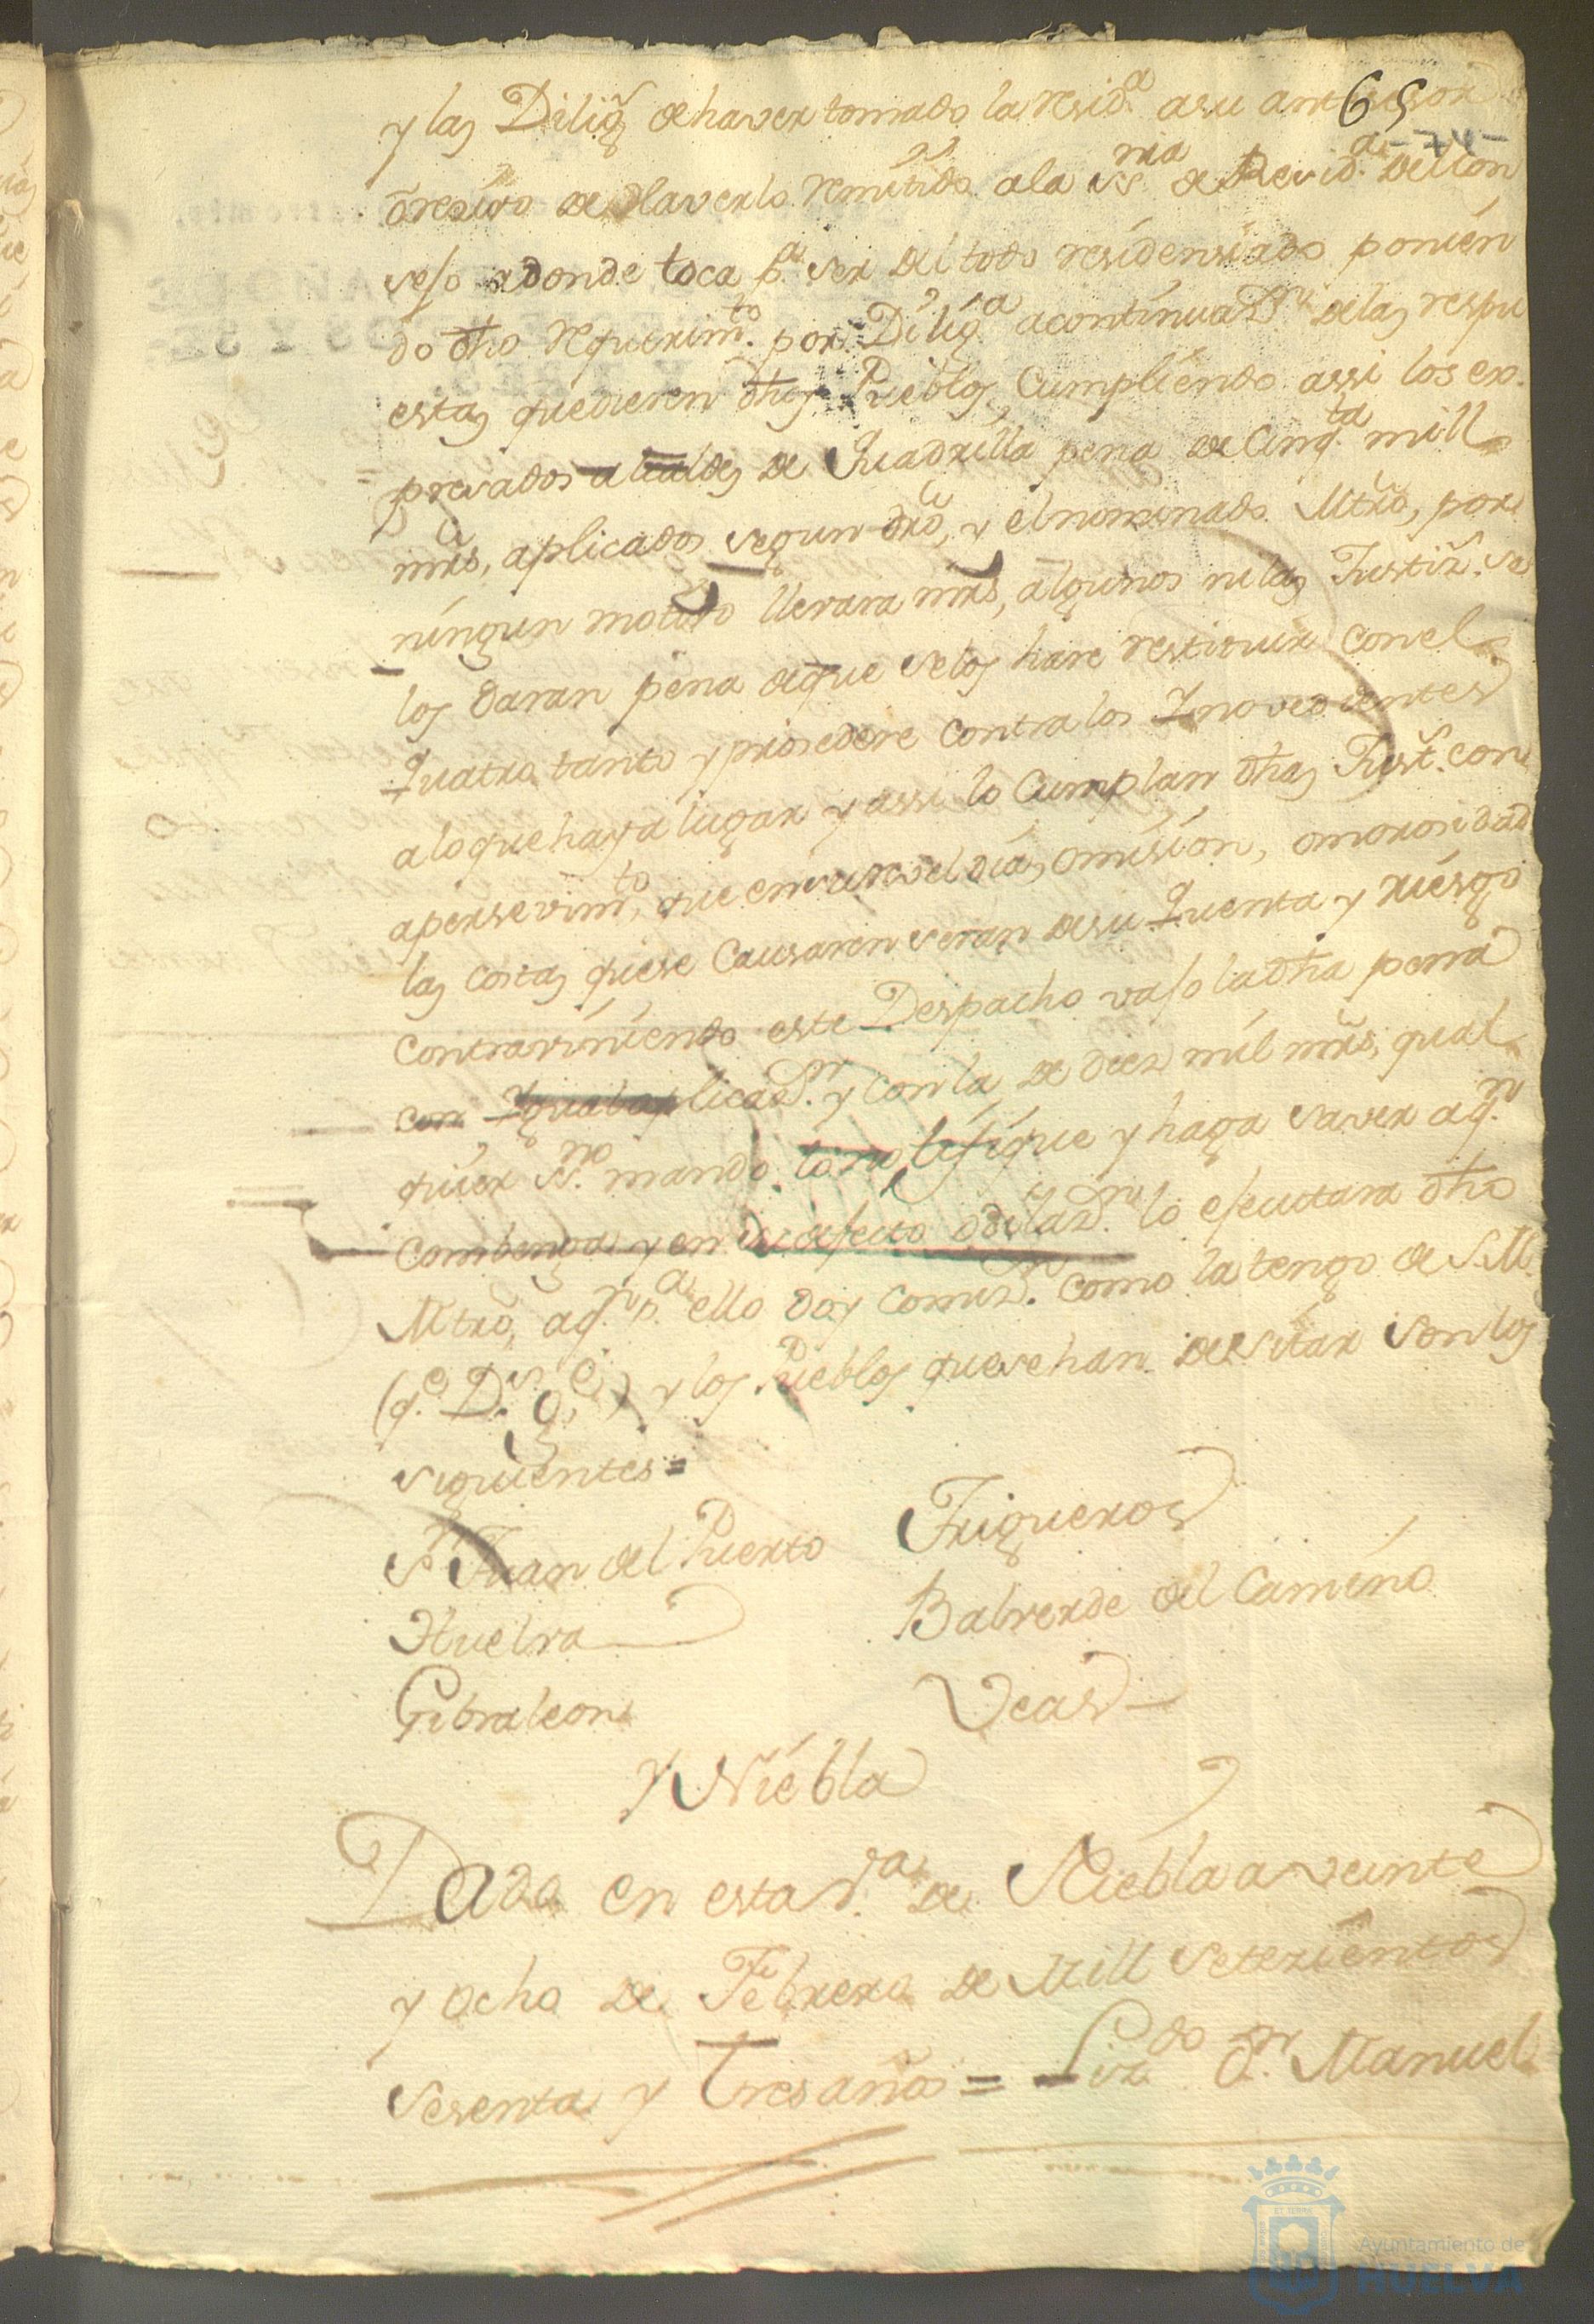 y las Dilig.s de haver tomado la resid.a a su antecesor
65
- 74 -
o resivo de Haverlo remitido a la ss.ria de Resid.as del Con
sejo adonde toca p.a ser del todo residensiado ponien
do dho requerim.to por Dilig.a a continuaz.n de las respu
estas que dieren dhos Pueblos Cumpliendo assi los ex
presados alcaldes de Quadrilla pena de Cinq.ta mill
mrs, aplicados segun dro, y el nominado Mtro, por
ningun motivo llevara mrs, algunos ni las Justiz.s se
los daran pena de que se los hare restituir con el
Quatro tanto y prosedere Contra los Ynovedientes
a lo que haya lugar y assi lo Cumplan dhas Just.s con
apersevim.to, que en su reveldia, omision, o morosidad
las costas que se Causaren seran de su Quenta y riesgo
contraviniendo este Despacho vajo la dha pena
con Ygual aplicaz.n y con la de diez mil mrs, qual
quier ss.no mando lo notifique y haga saver a q.n
combenga y en su defecto o dilaz.n lo ejecutara dho
Mtro, a q.n p.a ello doy Comiz.n como la tengo de S.M.
(q.e D.s g.e) y los Pueblos que se han de sitar son los
siguientes=
S.n Juan del Puerto Trigueros
Huelva Balverde del Camino
Gibraleon Veas
y Niebla
Dado en esta v.a de Niebla a veinte
y ocho de Febrero de Mill setezientos
sesenta y tres años = Liz.do d.n Manuel
Ayuntamiento de
HUELVA